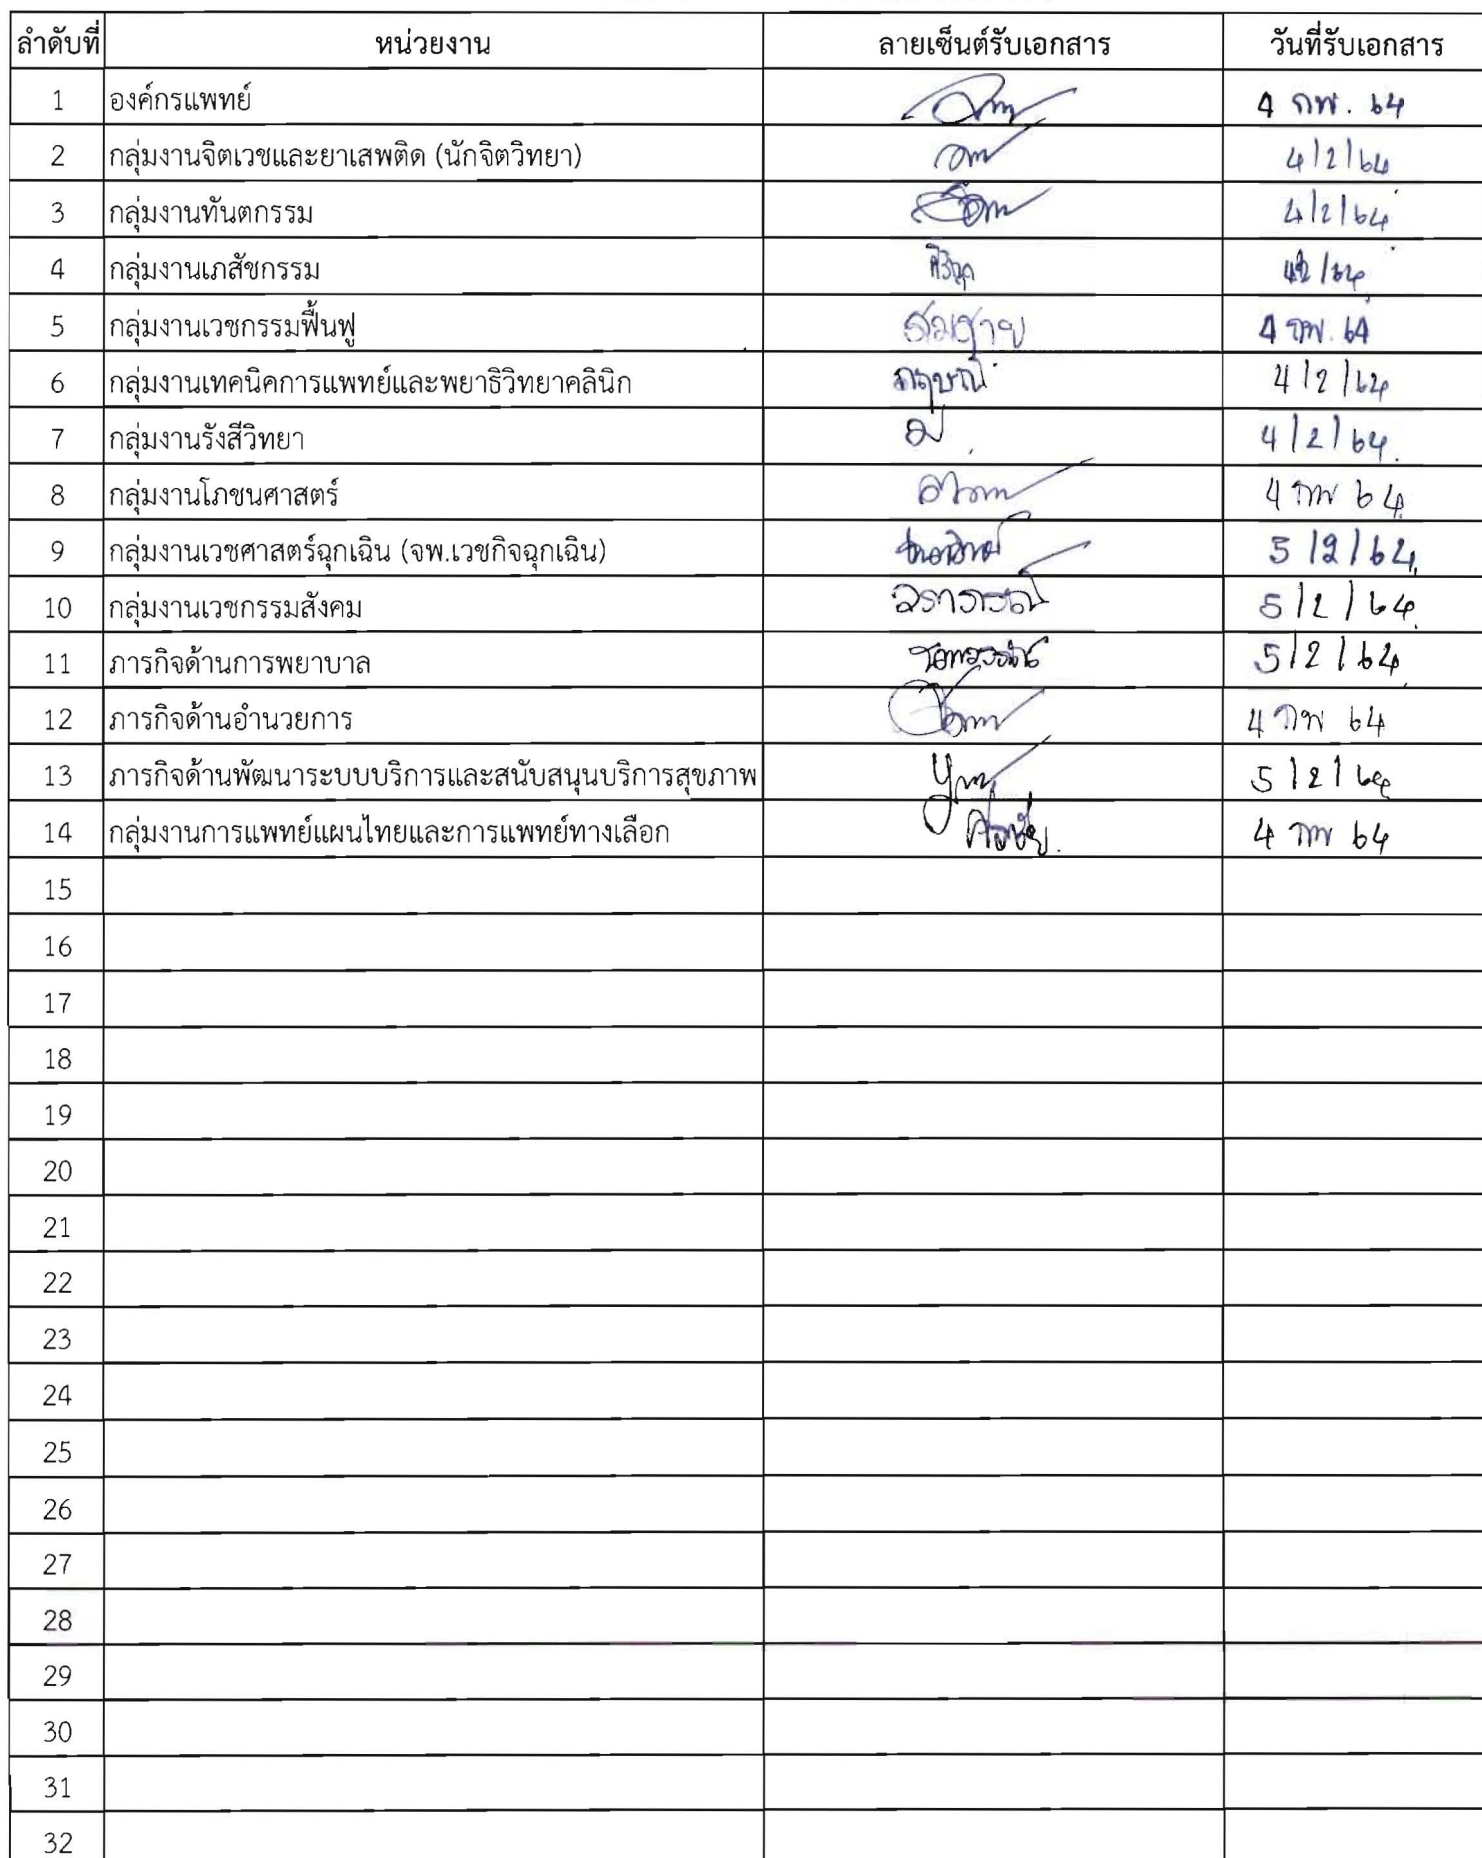 ลำดับที่ หน่วยงาน ลายเซ็นต์รับเอกสาร วันที่รับเอกสาร
1 องค์กรแพทย์ 4 กพ. 64
2 กลุ่มงานจิตเวชและยาเสพติด (นักจิตวิทยา) 4/2/64
3 กลุ่มงานทันตกรรม 4/2/64
4 กลุ่มงานเภสัชกรรม 4/2/64
5 กลุ่มงานเวชกรรมฟื้นฟู สมชาย 4 กพ. 64
6 กลุ่มงานเทคนิคการแพทย์และพยาธิวิทยาคลินิก 4/2/64
7 กลุ่มงานรังสีวิทยา 4/2/64.
8 กลุ่มงานโภชนศาสตร์ 4 กพ 64
9 กลุ่มงานเวชศาสตร์ฉุกเฉิน (จพ.เวชกิจฉุกเฉิน) 5/2/64
10 กลุ่มงานเวชกรรมสังคม 5/2/64
11 ภารกิจด้านการพยาบาล 5/2/64
12 ภารกิจด้านอำนวยการ 4 กพ 64
13 ภารกิจด้านพัฒนาระบบบริการและสนับสนุนบริการสุขภาพ 5/2/64
14 กลุ่มงานการแพทย์แผนไทยและการแพทย์ทางเลือก 4 กพ 64
15
16
17
18
19
20
21
22
23
24
25
26
27
28
29
30
31
32